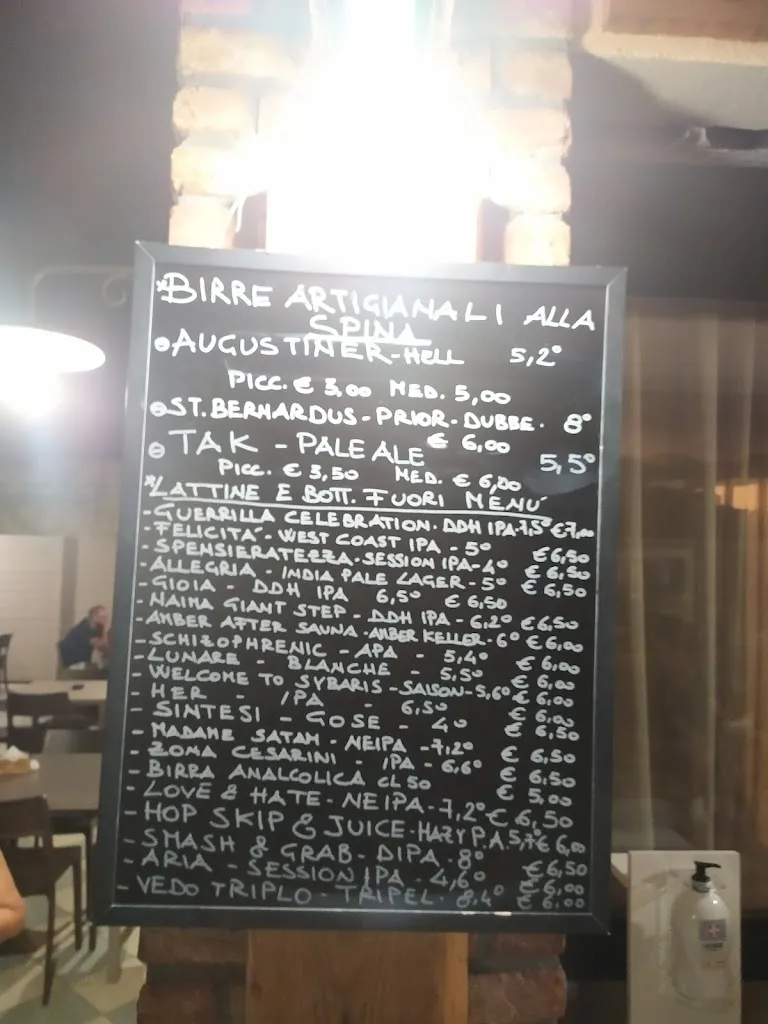 *BIRRE ARTIGIANALI ALLA
SPINA
•AUGUSTINER-HELL 5,2°
PICC. € 3,00 MED. 5,00
•ST. BERNARDUS-PRIOR-DUBBE. 8°
€ 6,00
•TAK - PALE ALE 5,5°
PICC. € 3,50 MED. € 6,00
*LATTINE E BOTT. FUORI MENÚ
-GUERRILLA CELEBRATION. DDH IPA-7,5° €7,00
-FELICITÁ-WEST COAST IPA - 5° €6,50
-SPENSIERATEZZA-SESSION IPA-4° €6,50
-ALLEGRIA-INDIA PALE LAGER-5° €6,50
-GIOIA - DDH IPA 6,5° €6,50
-NAIMA GIANT STEP - DDH IPA-6,2° €6,50
-AMBER AFTER SAUNA-AMBER KELLER-6° €6,00
-SCHIZOPHRENIC - APA - 5,4° €6,00
-LUNARE - BLANCHE - 5,5° €6,00
-WELCOME TO SYBARIS-SAISON-5,6° €6,00
-HER - IPA - 6,5° €6,00
-SINTESI - GOSE - 4° €6,50
-MADAME SATAM-NEIPA-7,2° € 6,50
-ZONA CESARINI - IPA - 6,6° € 6,50
-BIRRA ANALCOLICA CL 50 € 5,00
-LOVE & HATE-NEIPA-7,2° € 6,50
-HOP SKIP & JUICE-HAZY P.A. 5,7° € 6,00
-SMASH & GRAB-DIPA-8° €6,50
-ARIA - SESSION IPA - 4,6° €6,00
-VEDO TRIPLO-TRIPEL-8,4° €6,00